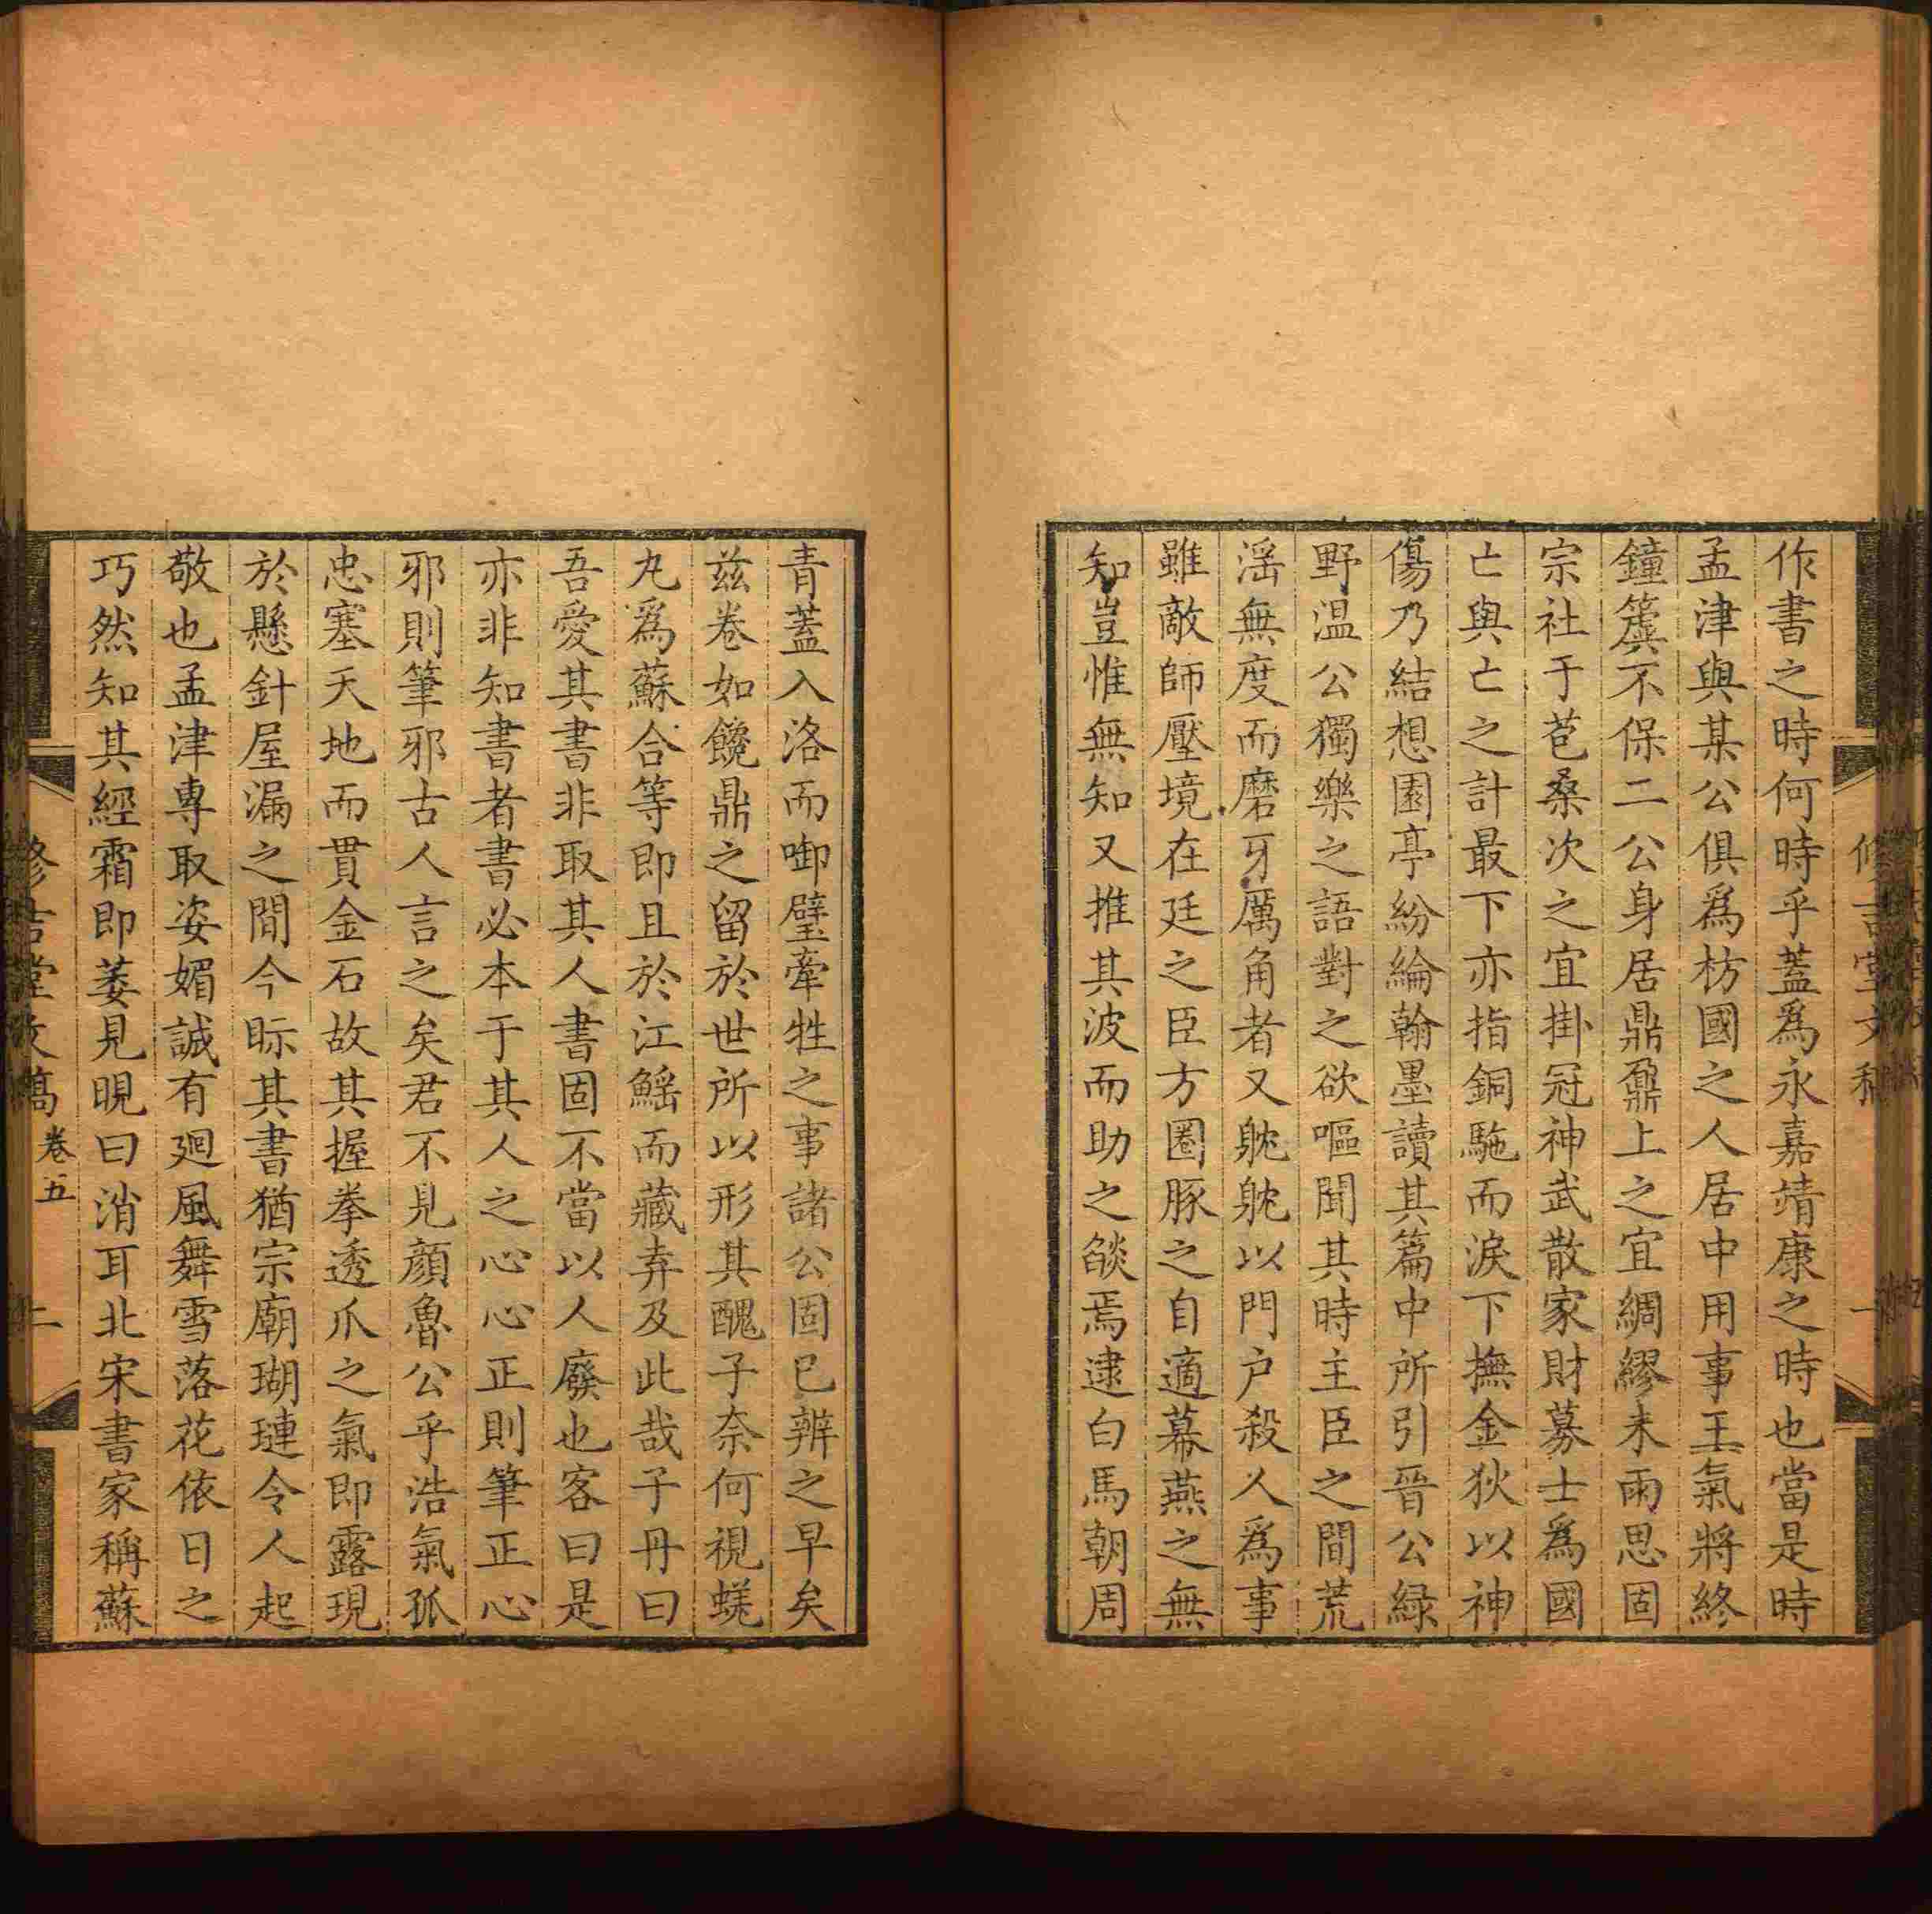 作書之時何時乎蓋爲永嘉靖康之時也當是時
孟津與某公俱爲枋國之人居中用事王氣將終
鐘簴不保二公身居鼎鼐上之宜綢繆未雨思固
宗社于苞桑次之宜掛冠神武散家財募士爲國
亡與亡之計最下亦指銅駞而淚下撫金狄以神
傷乃結想園亭紛綸翰墨讀其篇中所引晉公綠
野温公獨樂之語對之欲嘔聞其時主臣之間荒
滛無度而磨牙厲角者又躭躭以門户殺人爲事
雖敵師壓境在廷之臣方圈豚之自適幕燕之無
知豈惟無知又推其波而助之燄焉逮白馬朝周
青蓋入洛而啣璧牽牲之事諸公固已辨之早矣
兹卷如饞鼎之留於世所以形其醜子奈何視蜣
丸爲蘇合等即且於江鰩而藏弆及此哉子丹曰
吾愛其書書非取其人書固不當以人廢也客曰是
亦非知書者書必本于其人之心心正則筆正心
邪則筆邪古人言之矣君不見顔魯公乎浩氣孤
忠塞天地而貫金石故其握拳透爪之氣即露現
於懸針屋漏之間今眎其書猶宗廟瑚璉令人起
敬也孟津專取姿媚誠有廻風舞雪落花依日之
巧然知其經霜即萎見晛曰消耳北宋書家稱蘇
修吉堂文稿
卷五
二